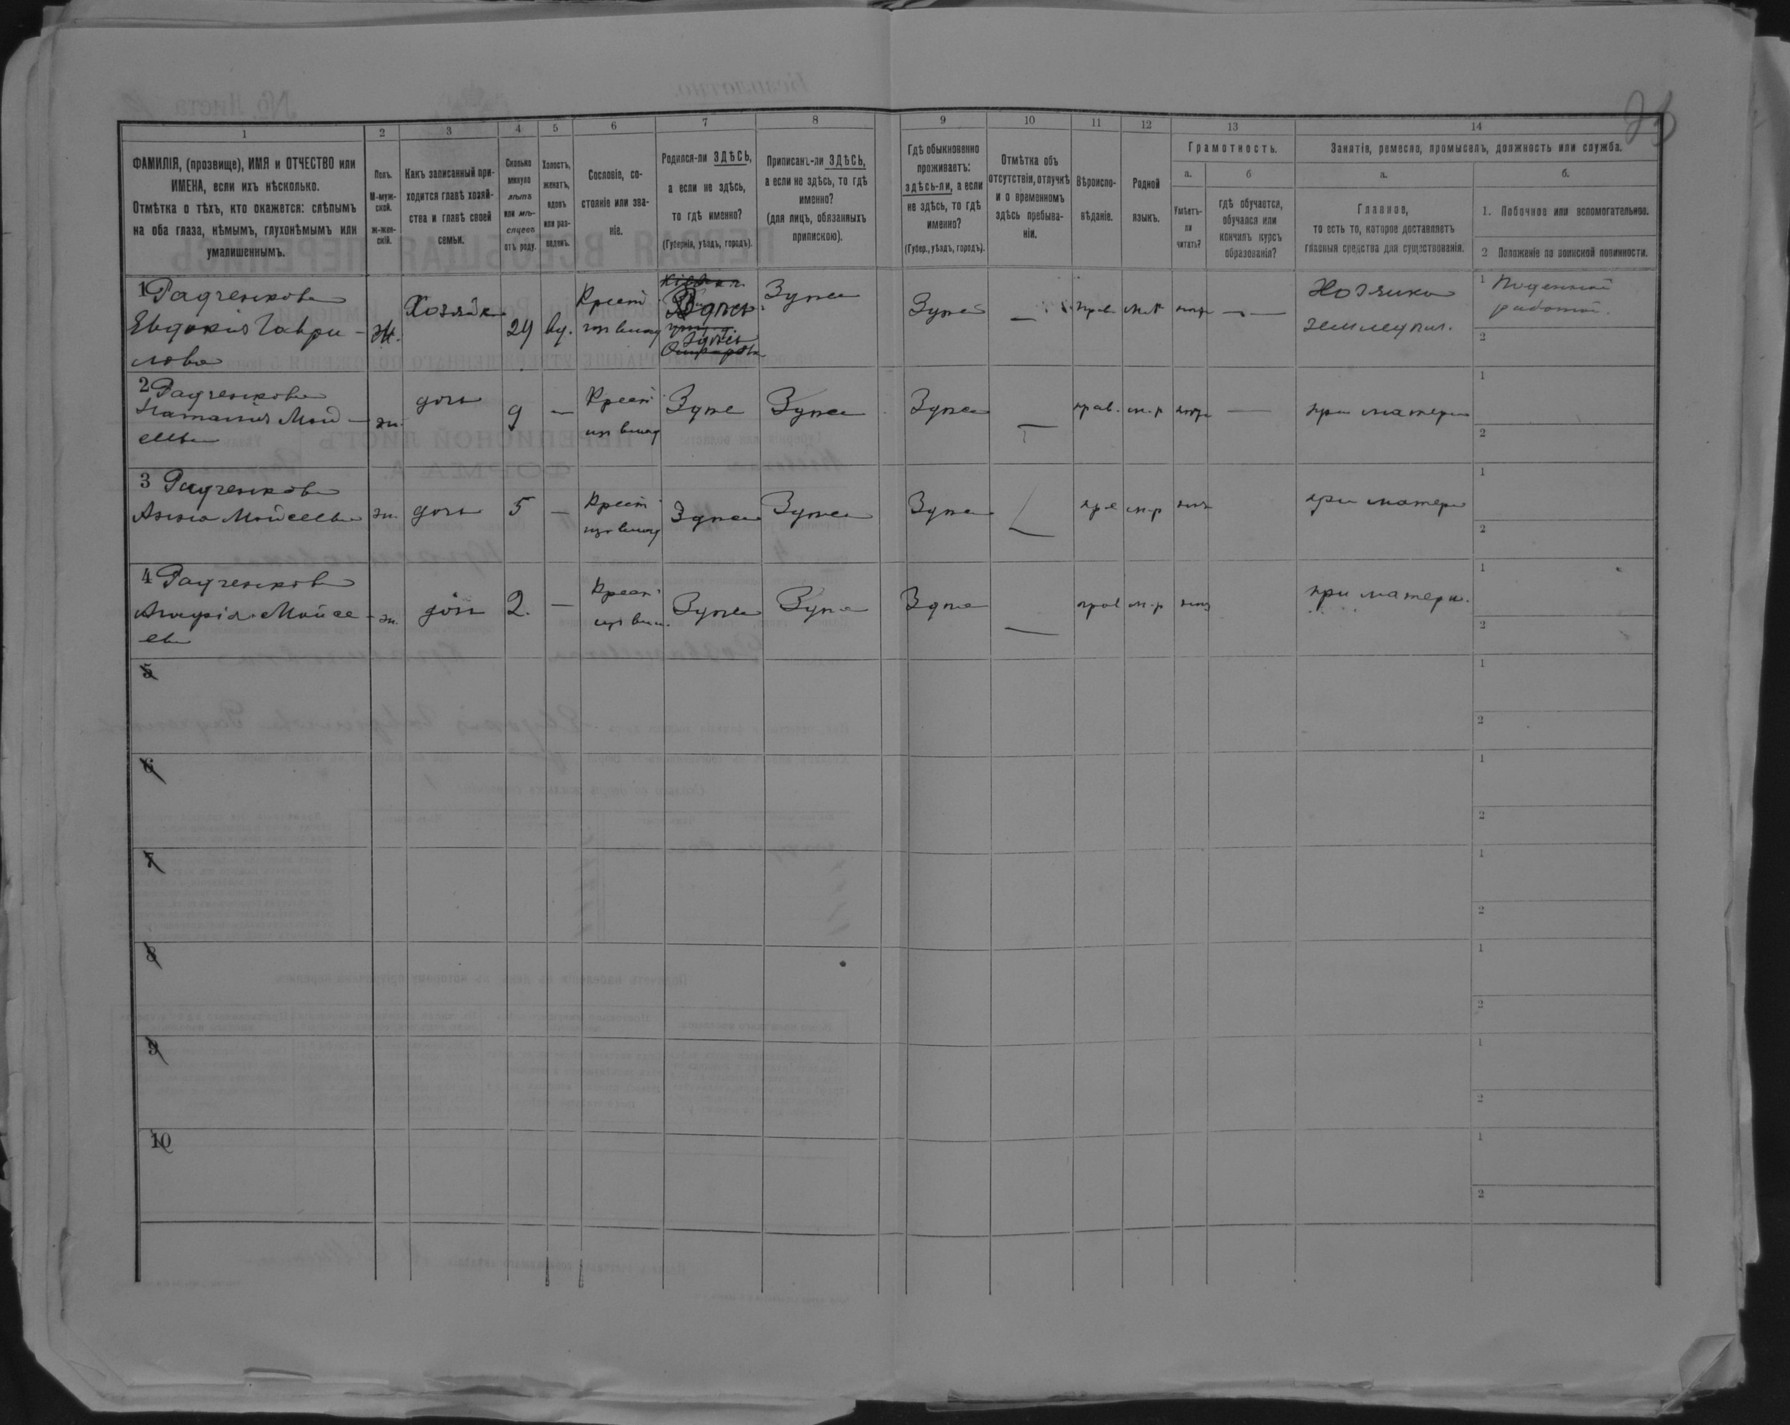 23
1
2
3
4
5
6
7
8
9
10
11
12
13
14
ФАМИЛІЯ, (прозвище), ИМЯ и ОТЧЕСТВО или
ИМЕНА, если ихъ нѣсколько.
Отмѣтка о тѣхъ, кто окажется: слѣпымъ
на оба глаза, нѣмымъ, глухонѣмымъ или
умалишеннымъ.
Полъ.
М-муж-
ской.
ж-жен-
скій.
Какъ записанный при-
ходится главѣ хозяй-
ства и главѣ своей
семьи.
Сколько
минуло
лѣтъ
или мѣ-
сяцевъ
отъ роду.
Холостъ,
женатъ,
вдовъ
или раз-
веденъ.
Сословіе, со-
стояніе или зва-
ніе.
Родился-ли ЗДѢСЬ,
а если не здѣсь,
то гдѣ именно?
(Губернія, уѣздъ, городъ).
Приписанъ-ли ЗДѢСЬ,
а если не здѣсь, то гдѣ
именно?
(для лицъ, обязанныхъ
припискою).
Гдѣ обыкновенно
проживаетъ:
здѣсь-ли, а если
не здѣсь, то гдѣ
именно?
(Губер., уѣздъ, городъ).
Отмѣтка объ
отсутствіи, отлучкѣ
и о временномъ
здѣсь пребыва-
ніи.
Вѣроиспо-
вѣданіе.
Родной
языкъ.
Грамотность.
а.
б
Умѣетъ-
ли
читать?
гдѣ обучается,
обучался или
кончилъ курсъ
образованія?
Занятія, ремесло, промыселъ, должность или служба.
а.
б.
Главное,
то есть то, которое доставляетъ
главныя средства для существованія.
1. Побочное или вспомогательное.
2 Положеніе по воинской повинности.
1 Радченкова
Евдокія Гаври-
лова
ж.
Хозяйка
29
вд.
Крест
изъ влад
Здѣсь
Здѣсь
Здѣсь
Здѣсь
—
прав.
м.р
нѣтъ
—
Хозяйка
земледѣл.
1 Поденной
работой.
2
2 Радченкова
Наталія Мой-
сеева
ж.
дочь
9
—
Крест
изъ влад
Здѣсь
Здѣсь
Здѣсь
—
прав.
м.р
нѣтъ
—
при матери
1
2
3 Радченкова
Анна Мойсеева
ж.
дочь
5
—
Крест
изъ влад
Здѣсь
Здѣсь
Здѣсь
—
пра
м.р
нѣтъ
при матери
1
2
4 Радченкова
Мойсе-
ева
ж.
дочь
2.
—
Крест
изъ влад.
Здѣсь
Здѣсь
Здѣсь
—
прав
м.р
нѣтъ
при матери.
1
2
5
1
2
6
1
2
7
1
2
8
1
2
9
1
2
10
1
2